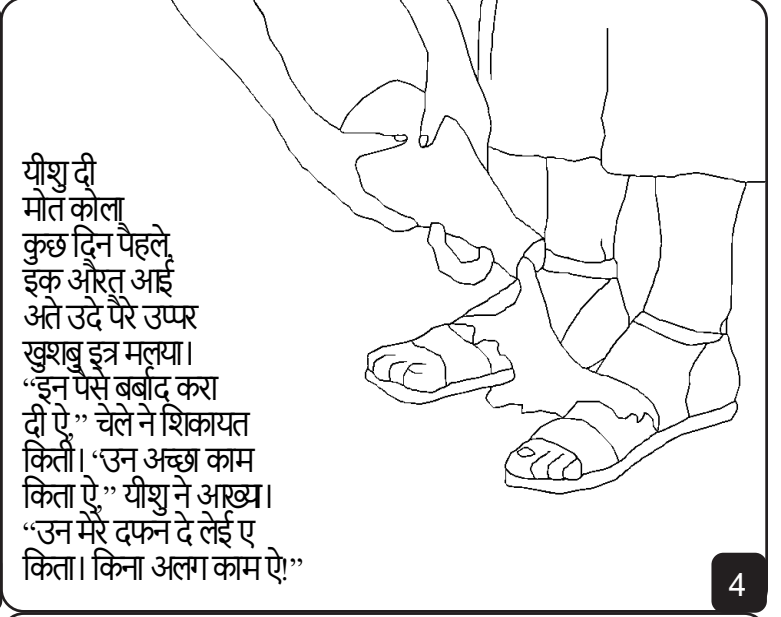 यीशु दी
मोत कोला
कुछ दिन पैहले,
इक औरत आई
अते उदे पैरे उप्पर
खुशबु इत्र मलया।
“इन पैसे बर्बाद करा
दी ऐ,” चेले ने शिकायत
किती। “उन अच्छा काम
किता ऐ,” यीशु ने आख्या।
“उन मेरे दफन दे लेई ए
किता। किना अलग काम ऐ!”
4